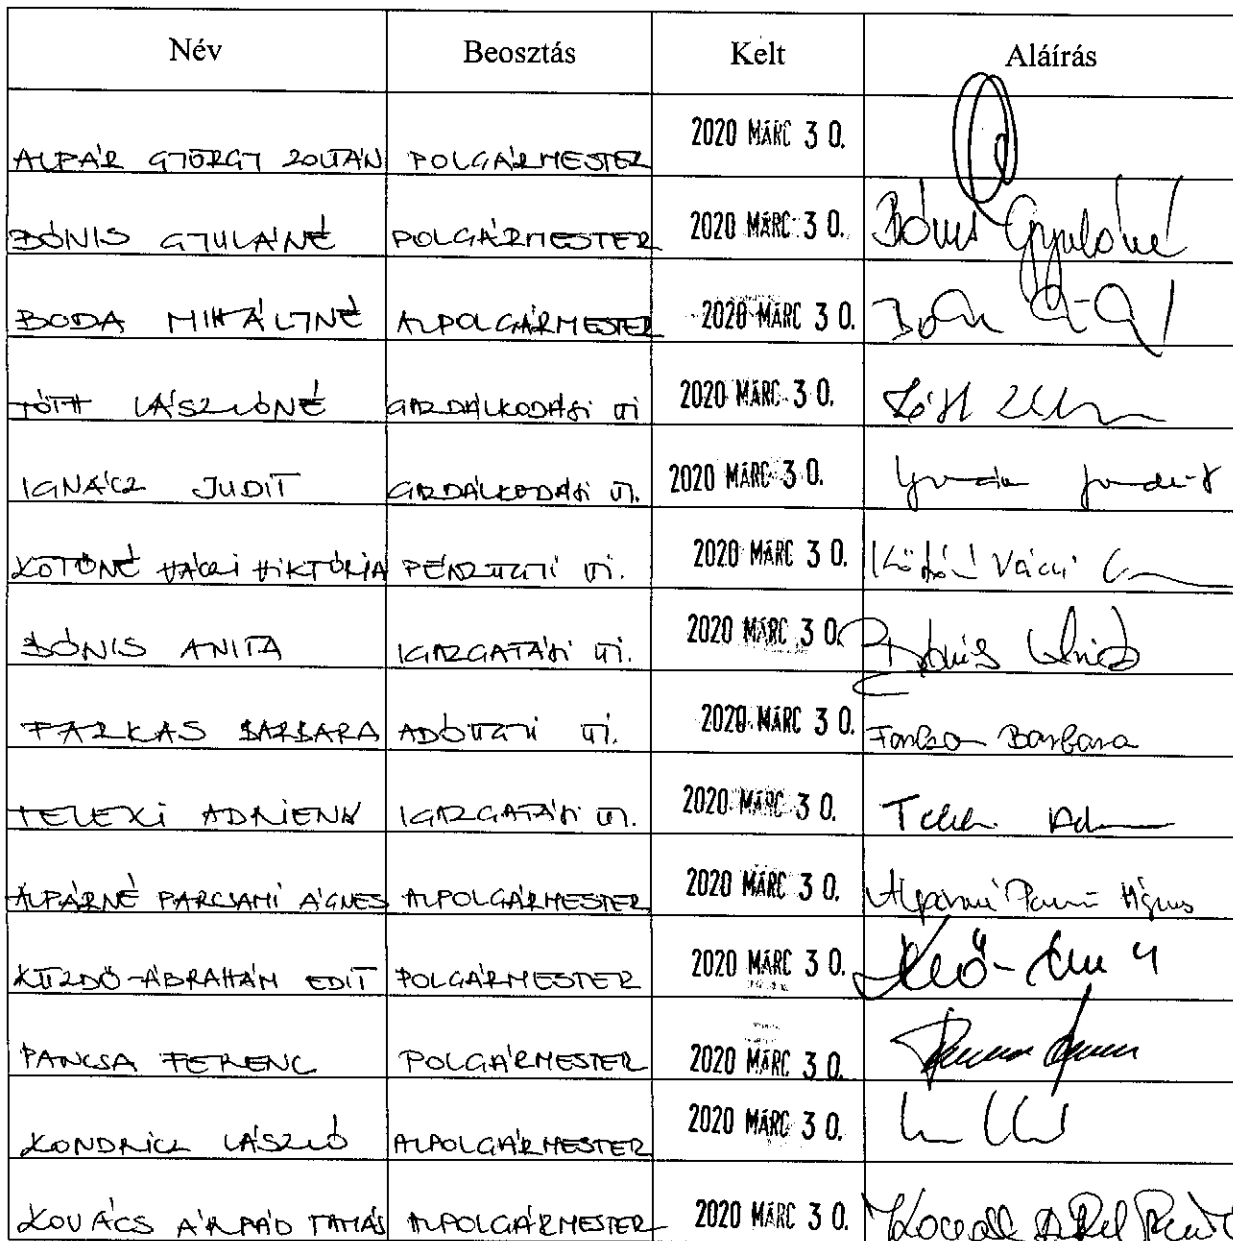 Név Beosztás Kelt Aláírás
ALPÁR GYÖRGY ZOLTÁN POLGÁRMESTER 2020 MÁRC 30.
BÓNIS GYULÁNÉ POLGÁRMESTER 2020 MÁRC 30. Bónis Gyuláné
BODA MIHÁLYNÉ ALPOLGÁRMESTER 2020 MÁRC 30.
TÓTH LÁSZLÓNÉ GAZDÁLKODÁSI ÜI 2020 MÁRC 30.
IGNÁCZ JUDIT GAZDÁLKODÁSI ÜI. 2020 MÁRC 30. Judit
VÁCZI VIKTÓRIA PÉNZÜGYI ÜI. 2020 MÁRC 30. Váczi
BÓNIS ANITA IGAZGATÁSI ÜI. 2020 MÁRC 30. Bónis Anita
FARKAS BARBARA ADÓÜGYI ÜI. 2020 MÁRC 30. Farkas Barbara
TELEKI ADRIENN IGAZGATÁSI ÜI. 2020 MÁRC 30.
ALPÁRNÉ PARCSAMI ÁGNES ALPOLGÁRMESTER 2020 MÁRC 30. Alpárné Ágnes
KÜZDŐ-ÁBRAHÁM EDIT POLGÁRMESTER 2020 MÁRC 30.
PANCSA FERENC POLGÁRMESTER 2020 MÁRC 30.
KONDRICZ LÁSZLÓ ALPOLGÁRMESTER 2020 MÁRC 30.
KOVÁCS ÁRPÁD TAMÁS ALPOLGÁRMESTER 2020 MÁRC 30.